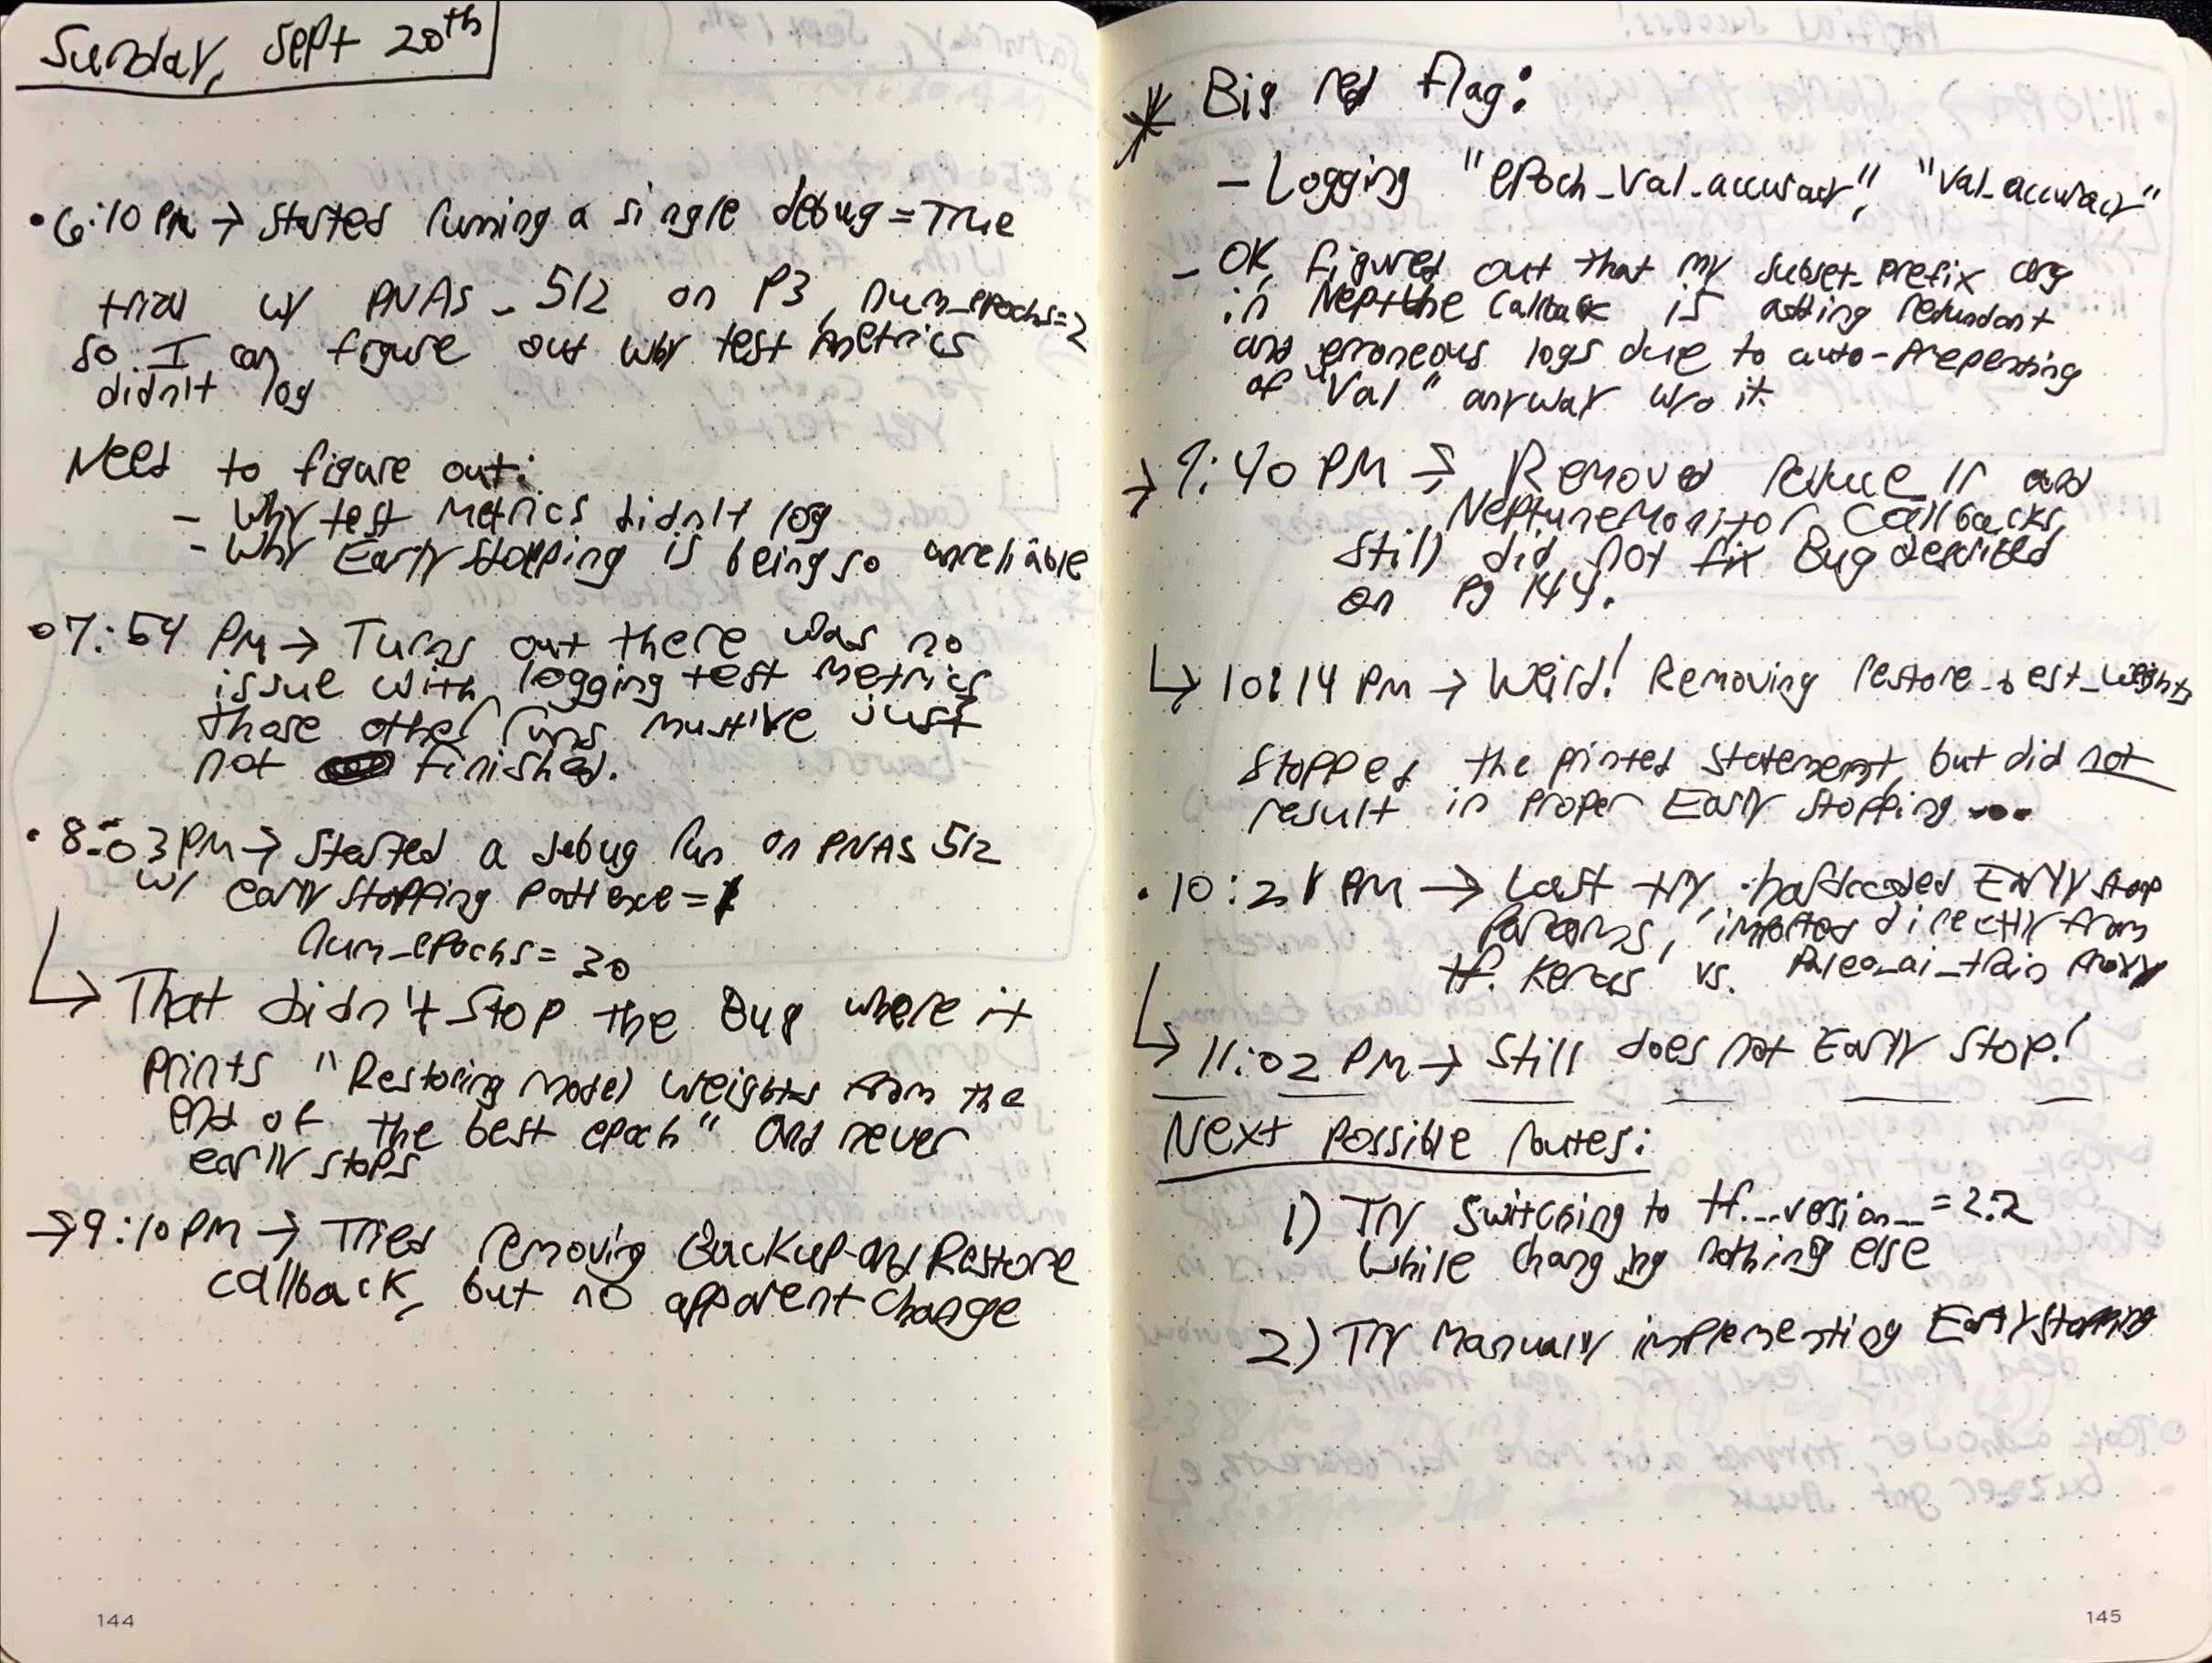 Sunday, Sept 20th
• 6:10 PM → Started running a single debug=True
trial w/ PNAS_512 on P3, num_epochs=2
so I can figure out why test metrics
didn't log
Need to figure out:
- Why test metrics didn't log
- Why EarlyStopping is being so unreliable
• 7:54 PM → Turns out there was no
issue with logging test metrics
those other runs must've just
not finished.
• 8:03 PM → Started a debug run on PNAS 512
w/ early stopping patience=1
num_epochs=30
↳ That didn't stop the Bug where it
prints "Restoring model weights from the
end of the best epoch" and never
early stops
→ 9:10 PM → Tried removing BackupandRestore
callback, but no apparent change
144
* Big red flag:
- Logging "epoch_val_accuracy", "val_accuracy"
- OK, figured out that my subset_prefix arg
in Neptune Callback is adding redundant
and erroneous logs due to auto-prepending
of "Val" anyway w/o it.
→ 9:40 PM → Removed reduce_lr and
NeptuneMonitor Callbacks,
Still did not fix Bug described
on Pg 144.
↳ 10:14 PM → Weird! Removing restore_best_weights
stopped the printed statement, but did not
result in proper Early stopping...
• 10:21 PM → Last try, hardcoded Early stop
Params, imported directly from
tf.keras vs. Paleo_ai_train proxy
↳ 11:02 PM → Still does not Early Stop!
Next possible routes:
1) Try switching to tf.__version__=2.2
While changing nothing else
2) Try Manually implementing EarlyStopping
145